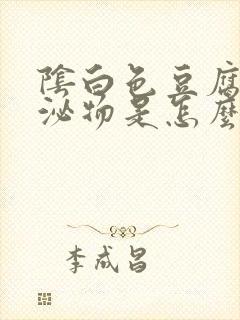 陰白色豆腐
泌物是怎麼
李成昌